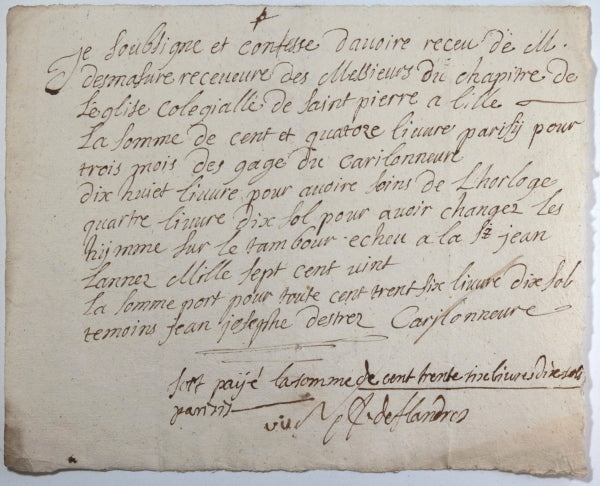 Je soubsigne et confesse davoire receu de M.
desmasure receveure des Messieurs du chapitre de
Leglise Colegialle de saint pierre a lille
La somme de cent et quatoze livure parisij pour
trois mois des gage du Carilonneure
dix huiet livure pour avoire soins de Lhorloge
quartre livure dix sol pour avoir changez les
hijmme sur le tambour echeu a la St jean
Lannez Mille sept cent vint
La somme port pour toute cent trent six livure dix sol
temoins jean josephe destrez Carilonneure
soit paÿé la somme de cent trente six livres dix sols
parisis
deflandres